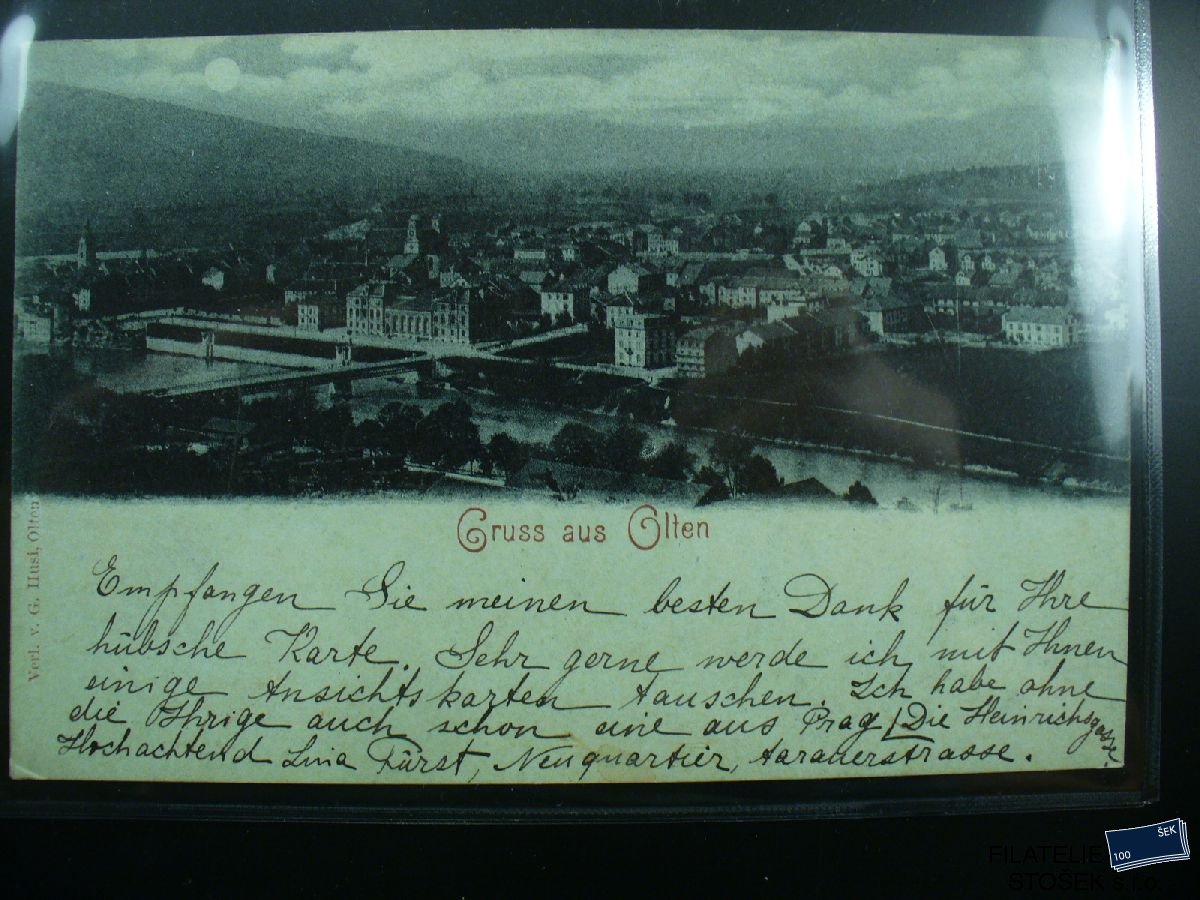 Gruss aus Olten
Empfangen Sie meinen besten Dank für Ihre
hübsche Karte. Sehr gerne werde ich mit Ihnen
einige Ansichtskarten tauschen. Ich habe ohne
die Ihrige auch schon eine aus Prag /Die Heinrichsgasse/
Hochachtend Lina Fürst, Neuquartier, Aarauerstrasse.
Verl. v. G. Husi, Olten
ŠEK
100
FILATELIE
STOŠEK s.r.o.